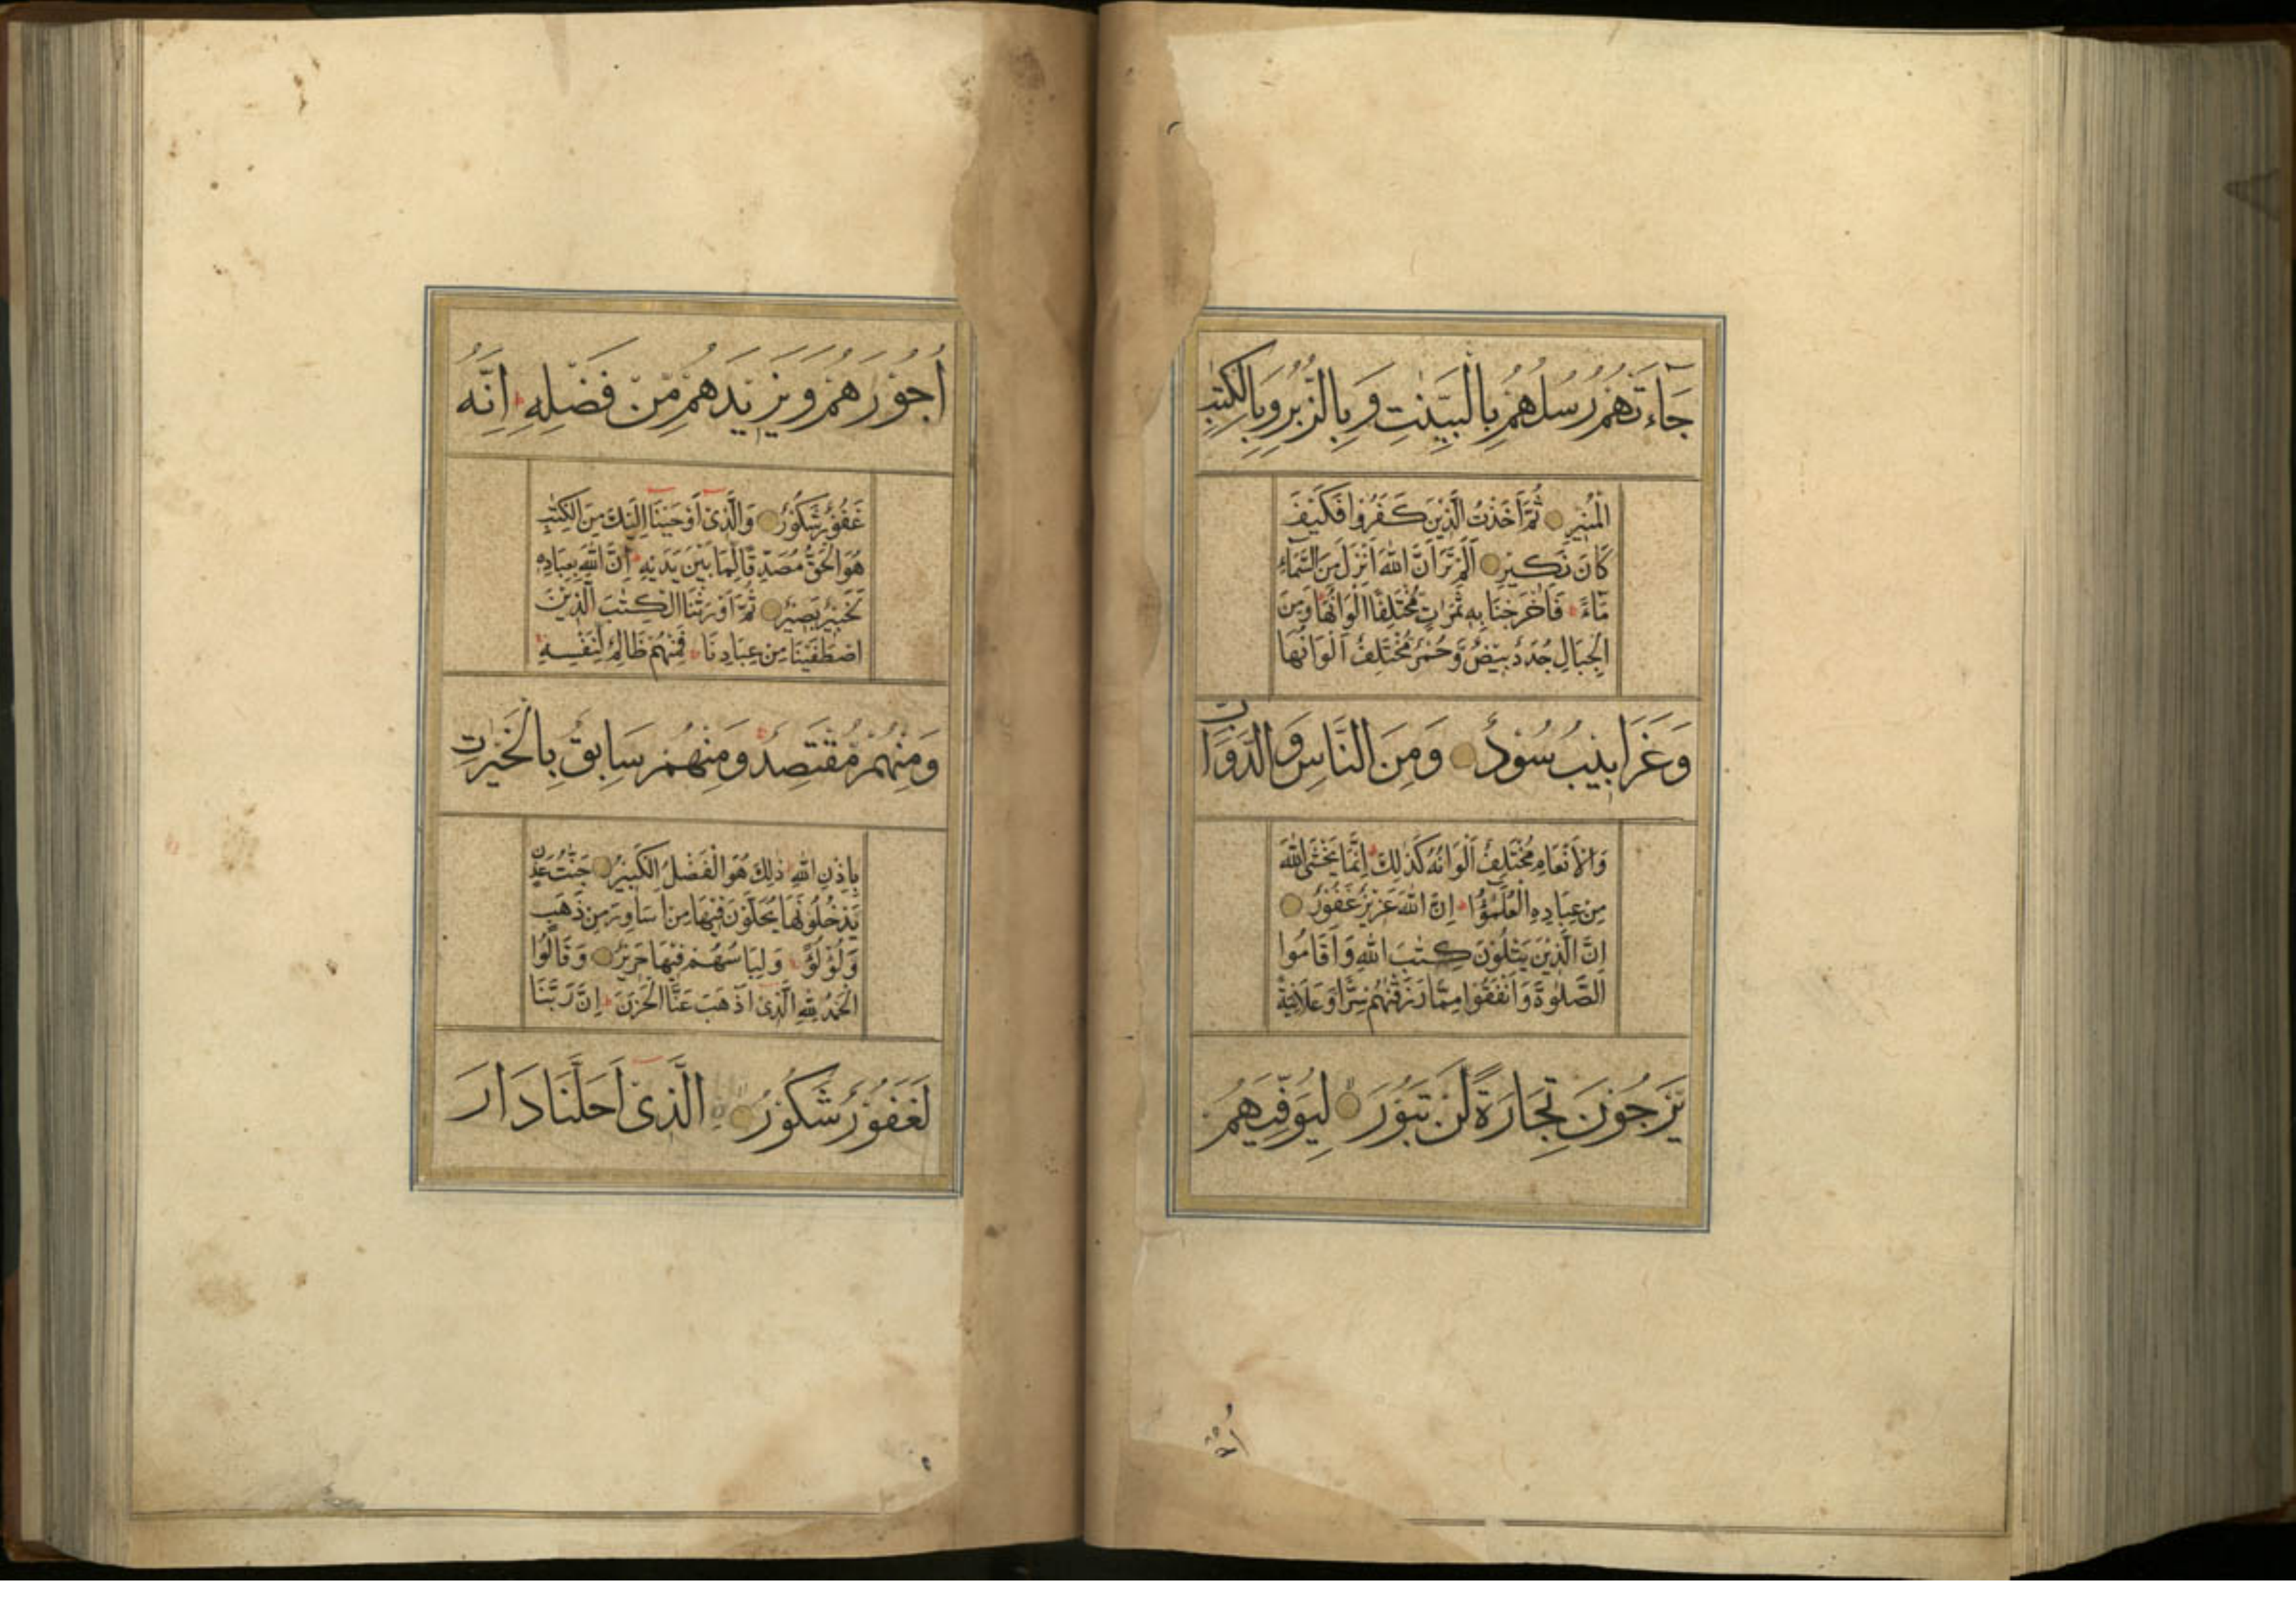 جَآءَتْهُمْ رُسُلُهُمْ بِالْبَيِّنٰتِ وَبِالزُّبُرِ وَبِالْكِتٰبِ
الْمُنِيْرِ ثُمَّ اَخَذْتُ الَّذِيْنَ كَفَرُوْا فَكَيْفَ
كَانَ نَكِيْرِ اَلَمْ تَرَ اَنَّ اللّٰهَ اَنْزَلَ مِنَ السَّمَآءِ
مَآءً فَاَخْرَجْنَا بِهٖ ثَمَرَاتٍ مُخْتَلِفًا اَلْوَانُهَا وَمِنَ
الْجِبَالِ جُدَدٌ بِيْضٌ وَّحُمْرٌ مُخْتَلِفٌ اَلْوَانُهَا
وَغَرَابِيْبُ سُوْدٌ وَمِنَ النَّاسِ وَالدَّوَآبِّ
وَالْاَنْعَامِ مُخْتَلِفٌ اَلْوَانُهٗ كَذٰلِكَ اِنَّمَا يَخْشَى اللّٰهَ
مِنْ عِبَادِهِ الْعُلَمٰٓؤُا اِنَّ اللّٰهَ عَزِيْزٌ غَفُوْرٌ
اِنَّ الَّذِيْنَ يَتْلُوْنَ كِتٰبَ اللّٰهِ وَاَقَامُوا
الصَّلٰوةَ وَاَنْفَقُوْا مِمَّا رَزَقْنٰهُمْ سِرًّا وَعَلَانِيَةً
يَّرْجُوْنَ تِجَارَةً لَّنْ تَبُوْرَ لِيُوَفِّيَهُمْ
اُجُوْرَهُمْ وَيَزِيْدَهُمْ مِّنْ فَضْلِهٖ اِنَّهٗ
غَفُوْرٌ شَكُوْرٌ وَالَّذِيْٓ اَوْحَيْنَآ اِلَيْكَ مِنَ الْكِتٰبِ
هُوَ الْحَقُّ مُصَدِّقًا لِّمَا بَيْنَ يَدَيْهِ اِنَّ اللّٰهَ بِعِبَادِهٖ
لَخَبِيْرٌ بَصِيْرٌ ثُمَّ اَوْرَثْنَا الْكِتٰبَ الَّذِيْنَ
اصْطَفَيْنَا مِنْ عِبَادِنَا فَمِنْهُمْ ظَالِمٌ لِّنَفْسِهٖ
وَمِنْهُمْ مُّقْتَصِدٌ وَمِنْهُمْ سَابِقٌ بِالْخَيْرٰتِ
بِاِذْنِ اللّٰهِ ذٰلِكَ هُوَ الْفَضْلُ الْكَبِيْرُ جَنّٰتُ عَدْنٍ
يَدْخُلُوْنَهَا يُحَلَّوْنَ فِيْهَا مِنْ اَسَاوِرَ مِنْ ذَهَبٍ
وَّلُؤْلُؤًا وَلِبَاسُهُمْ فِيْهَا حَرِيْرٌ وَقَالُوا
الْحَمْدُ لِلّٰهِ الَّذِيْٓ اَذْهَبَ عَنَّا الْحَزَنَ اِنَّ رَبَّنَا
لَغَفُوْرٌ شَكُوْرٌ الَّذِيْٓ اَحَلَّنَا دَارَ